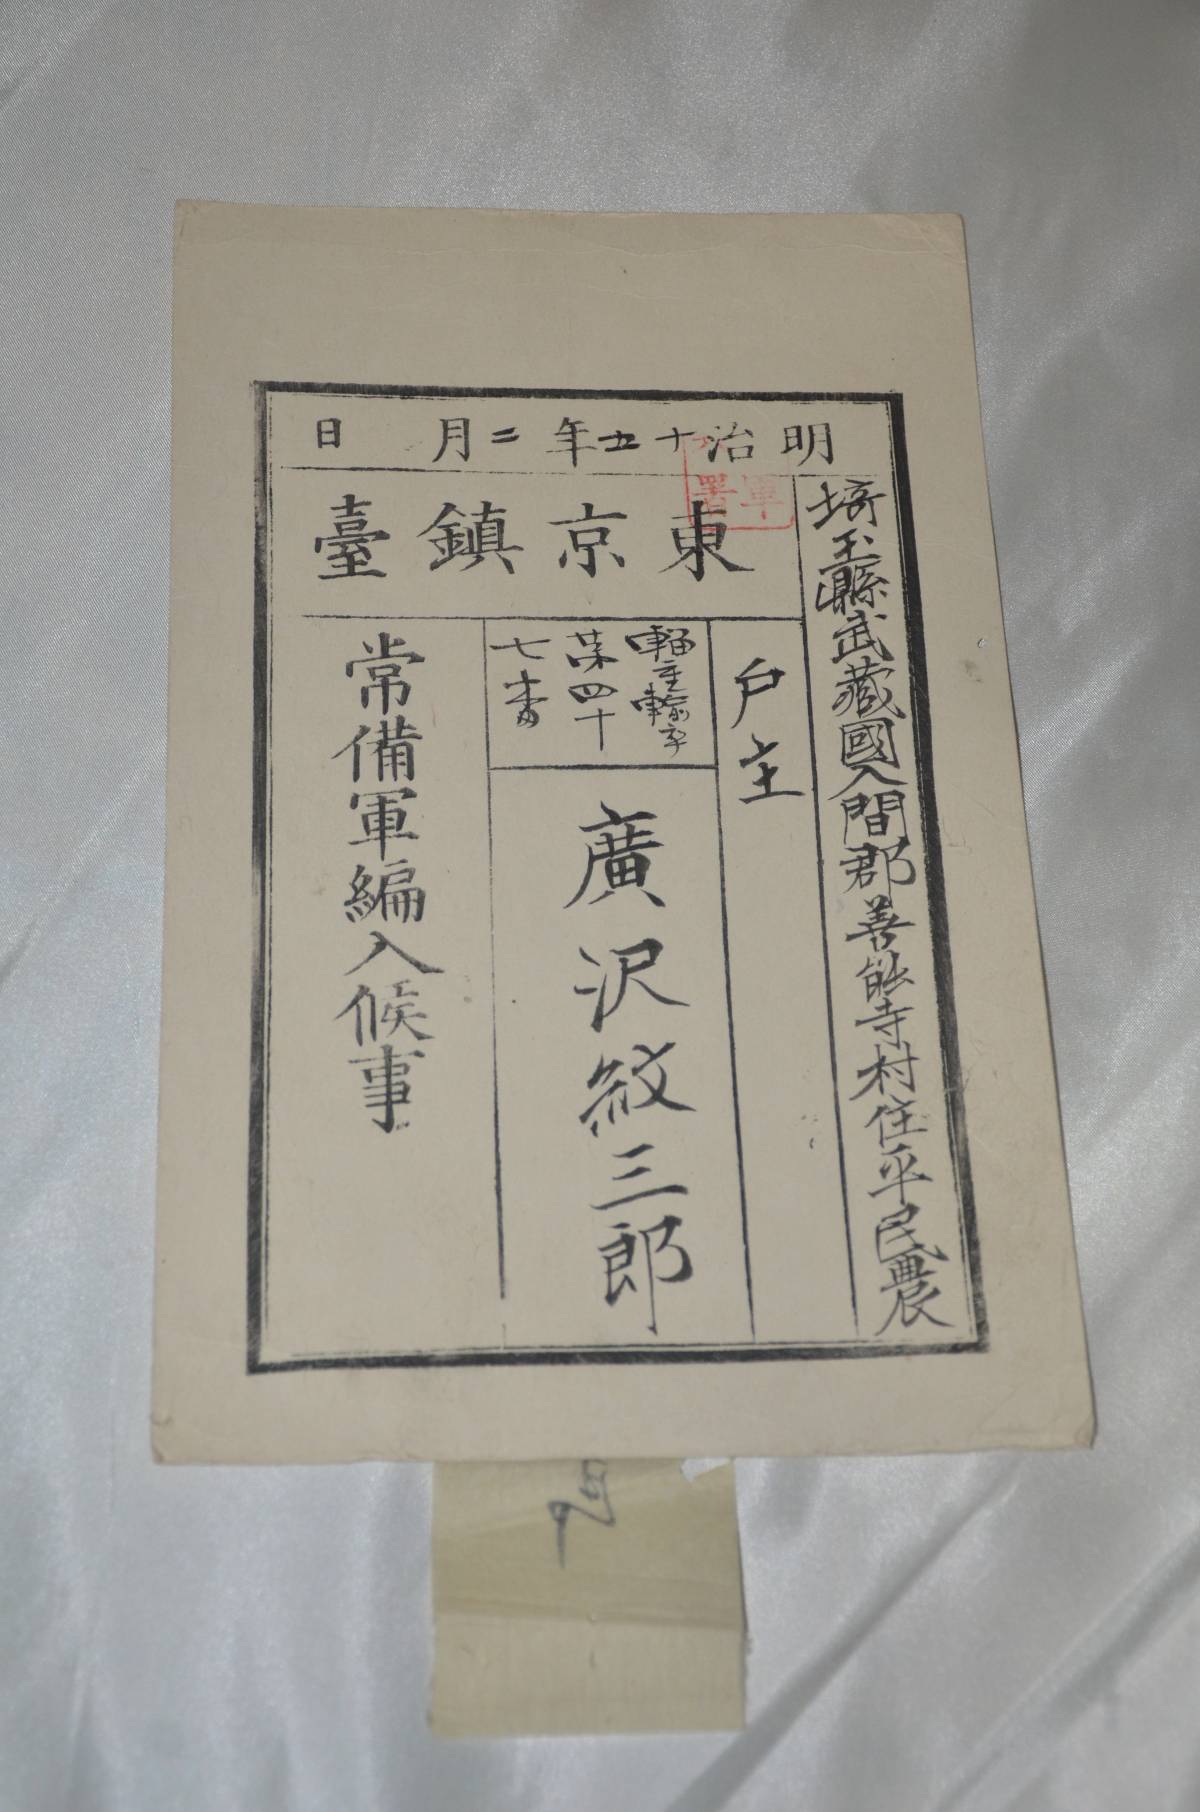 埼玉縣武藏國入間郡善能寺村住平民農
戸主
輜重輸卒
第四十
七番
廣沢紋三郎
常備軍編入候事
明治十五年二月 日
東京鎮臺